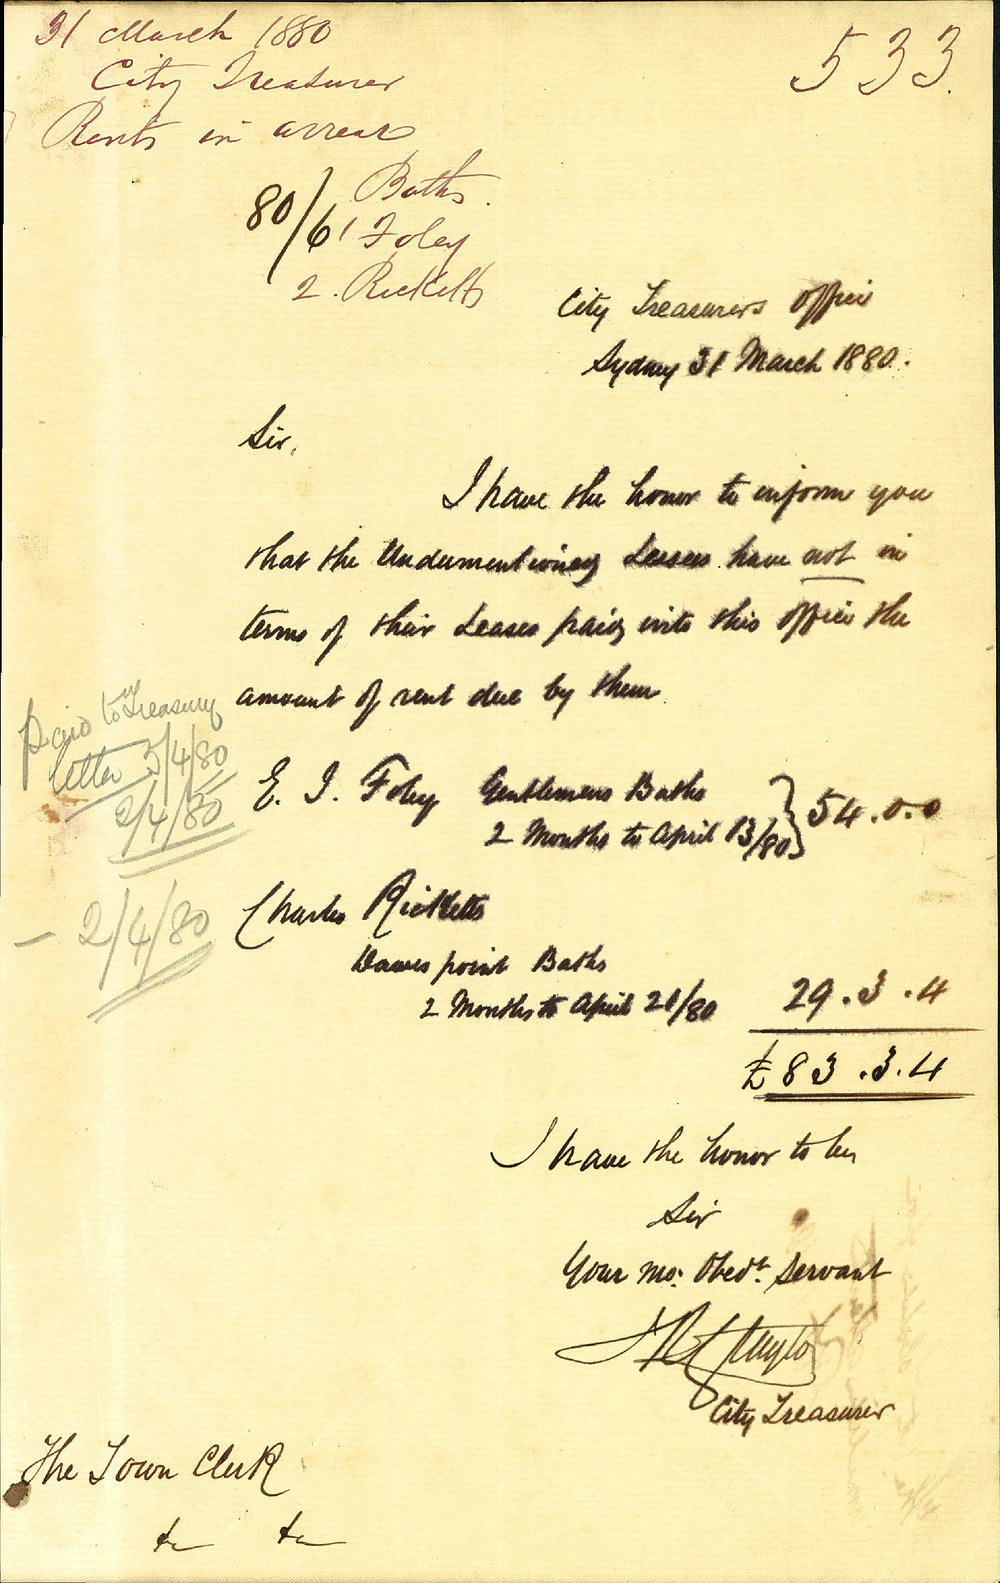 31 March 1880
City Treasurer
Rents in arrear
533.
80/61 Baths.
1 Foley
2. Ricketts
City Treasurers Office
Sydney 31 March 1880.
Sir,
I have the honor to inform you
that the Undermentioned Lessees have not in
terms of their Leases paid into this office the
amount of rent due by them.
Paid to Treasury
letter 5/4/80
2/4/80
E. J. Foley Gentlemens Baths
2 Months to April 13/80 } 54.0.0
2/4/80
Charles Ricketts
Dawes point Baths
2 Months to April 21/80 29.3.4
£83.3.4
I have the honor to be
Sir
Your mo: Obedt. Servant
City Treasurer
The Town Clerk
&c &c